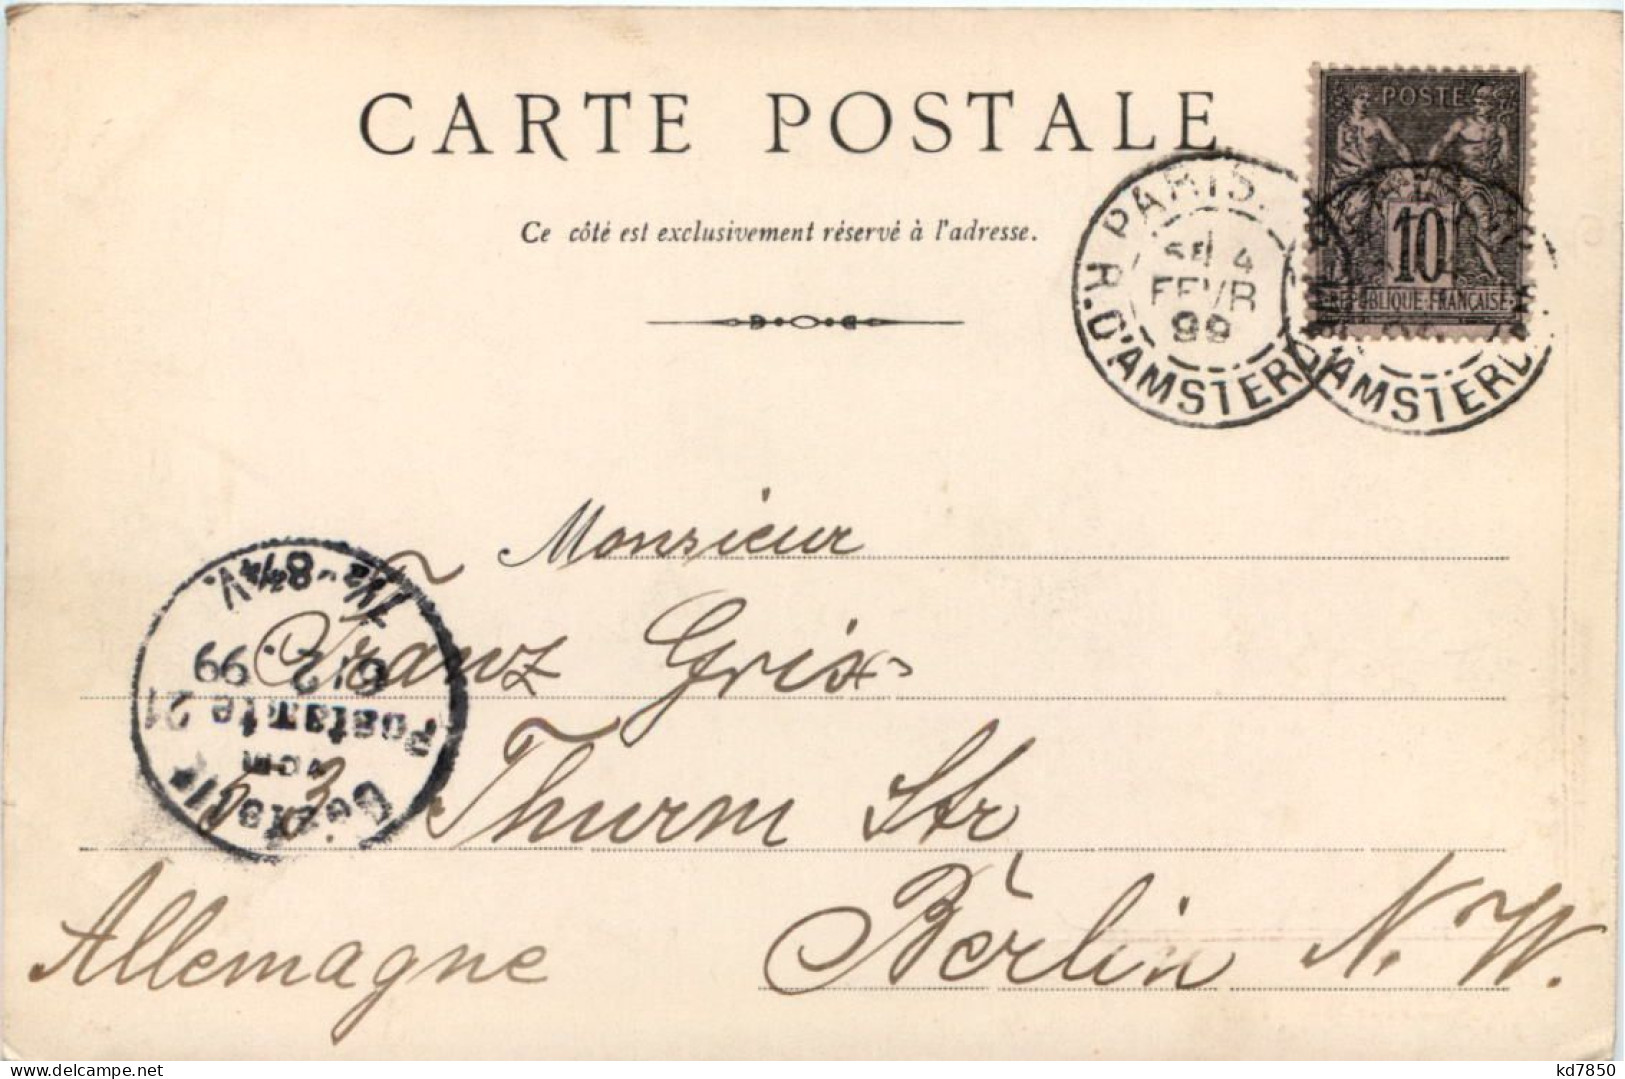 CARTE POSTALE
Ce côté est exclusivement réservé à l'adresse.
POSTE
10
REPUBLIQUE FRANÇAISE
PARIS.
4
FEVR
99
R. D'AMSTERD
AMSTERD
Monsieur
Franz Gris
3 Thurm Str
Berlin N.W.
Allemagne
Bestellt
vom
Postamte 21
6/2. 99
7½-8¼V.
kd7850